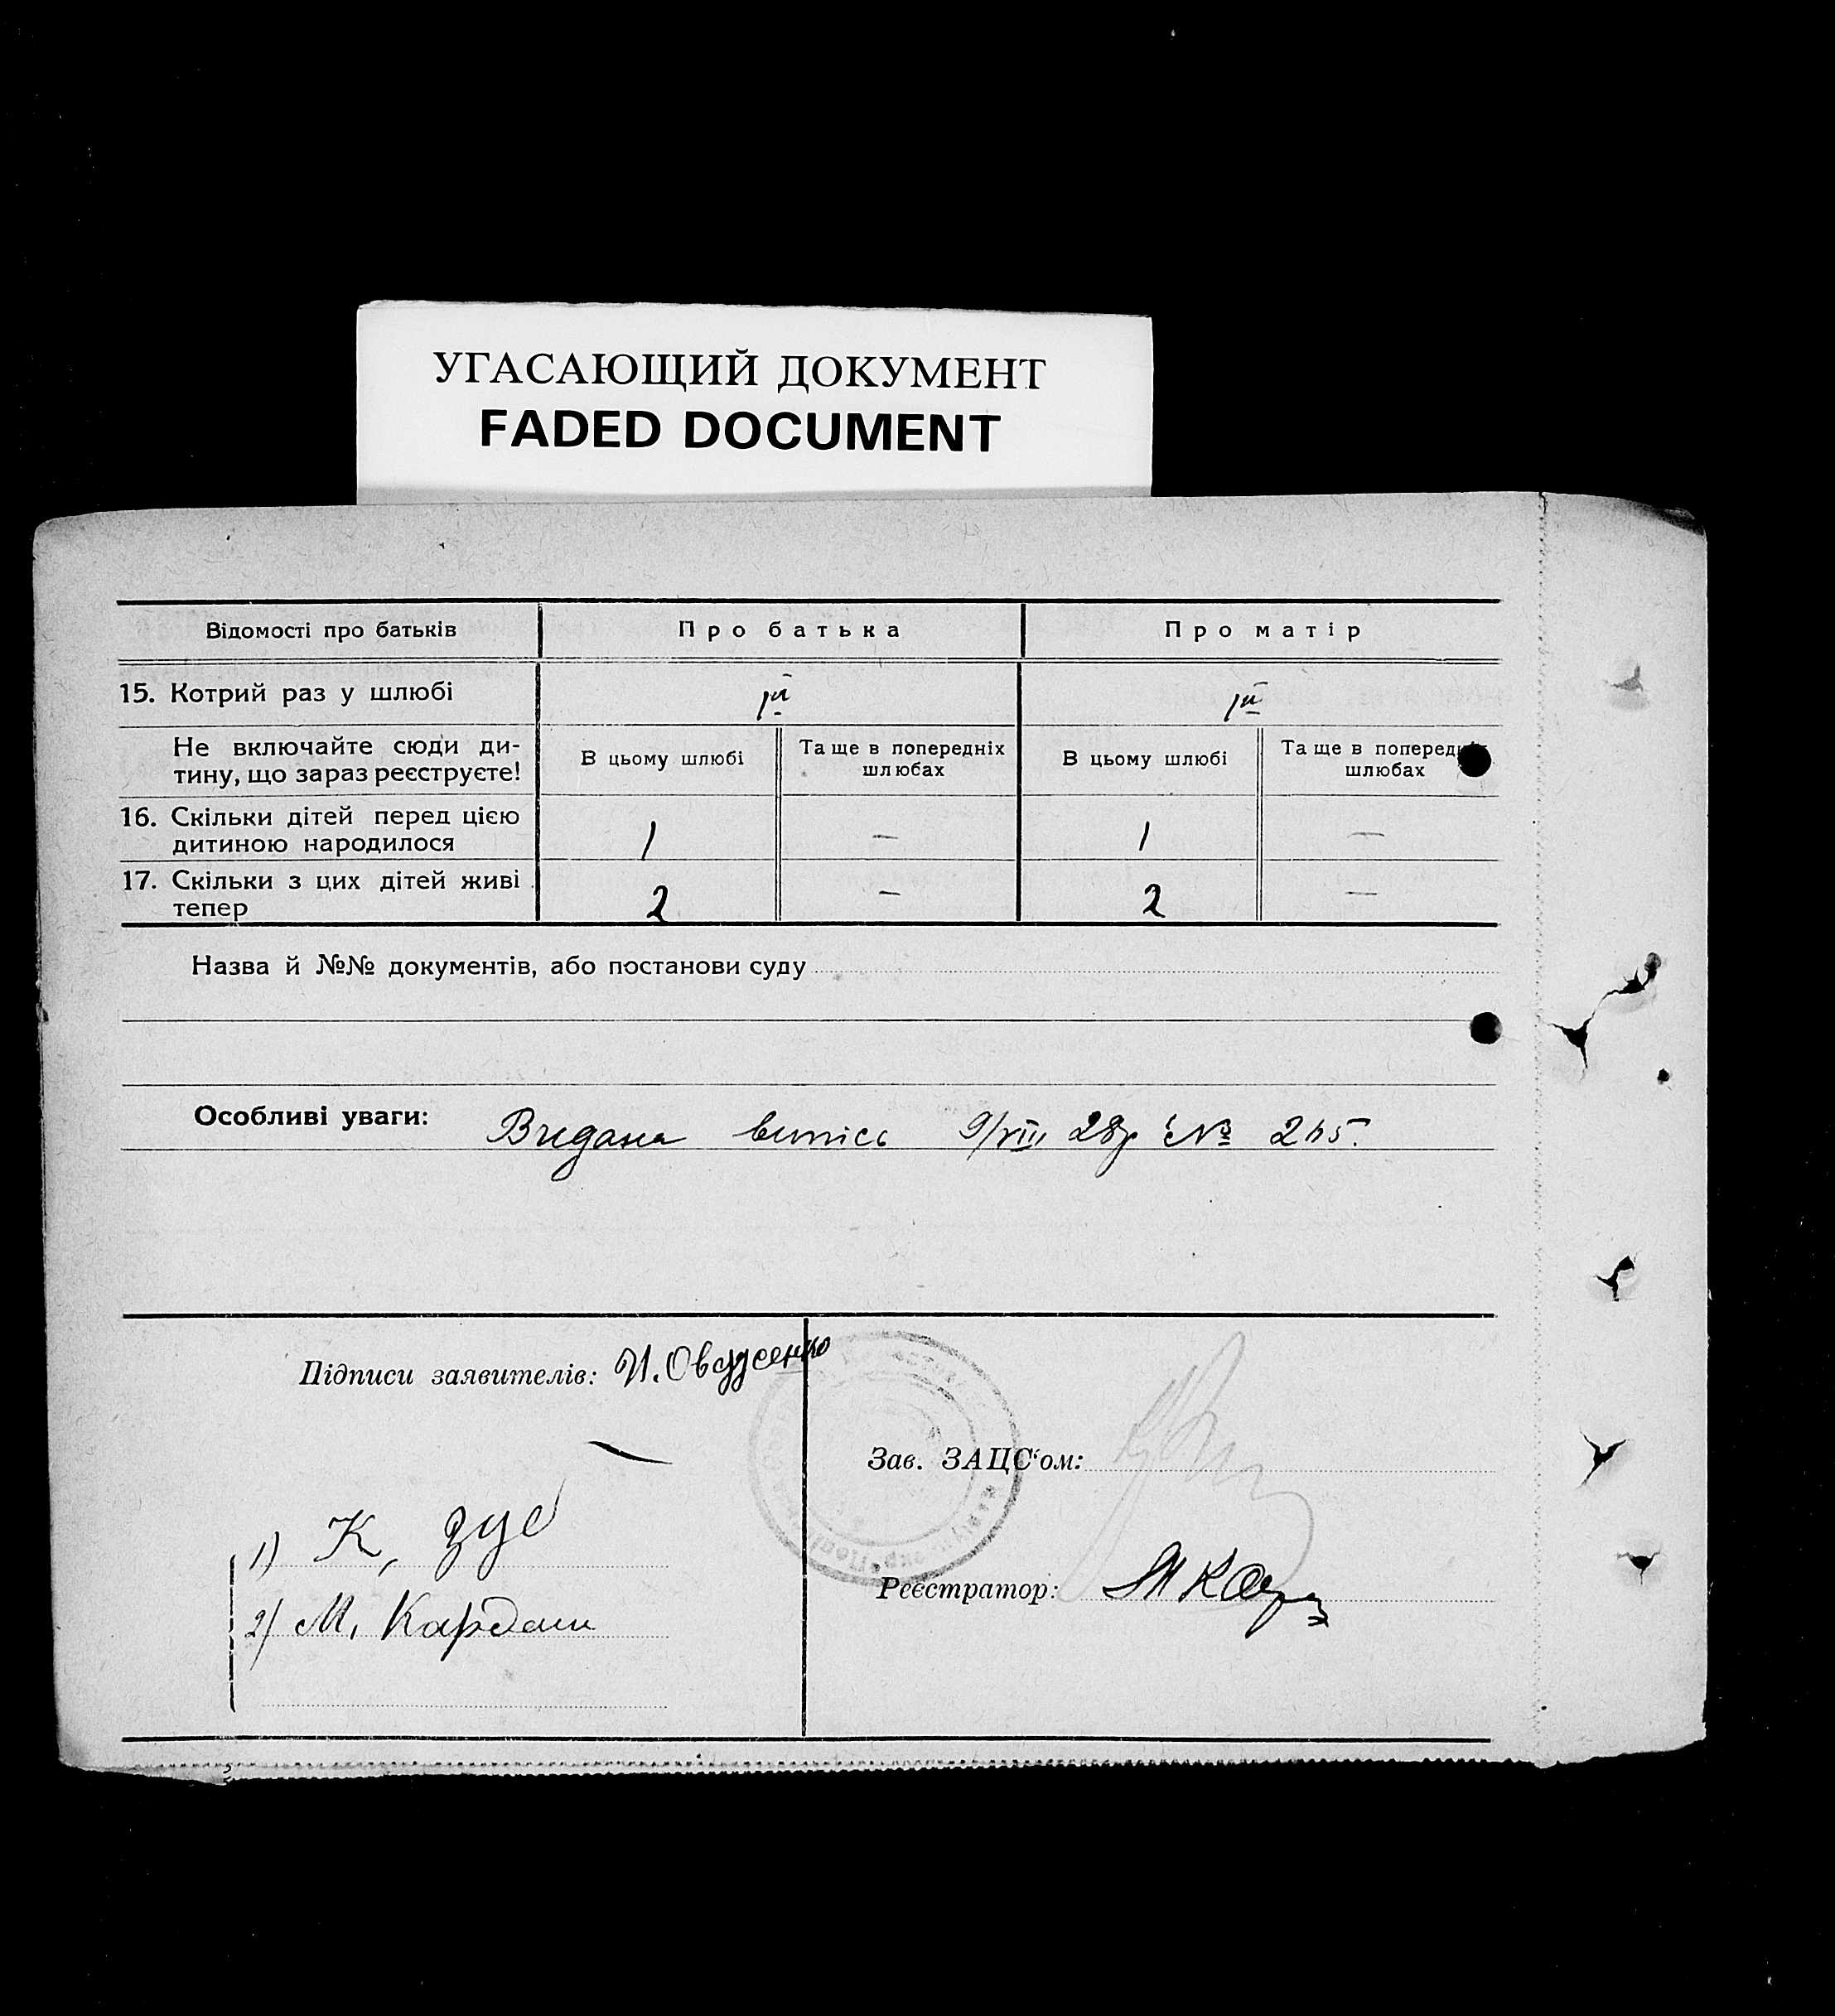 УГАСАЮЩИЙ ДОКУМЕНТ
FADED DOCUMENT
Відомості про батьків Про батька Про матір
15. Котрий раз у шлюбі 1й 1й
Не включайте сюди ди-
тину, що зараз реєструєте!
В цьому шлюбі Та ще в попередніх
шлюбах
В цьому шлюбі Та ще в поперед
шлюбах
16. Скільки дітей перед цією
дитиною народилося 1 — 1 —
17. Скільки з цих дітей живі
тепер 2 — 2 —
Назва й №№ документів, або постанови суду
Особливі уваги: Видана випись 9/VIII 28р №
Підписи заявителів: И.
Зав. ЗАЦС‘ом:
1) К,
Реєстратор:
2) М. Кардаш